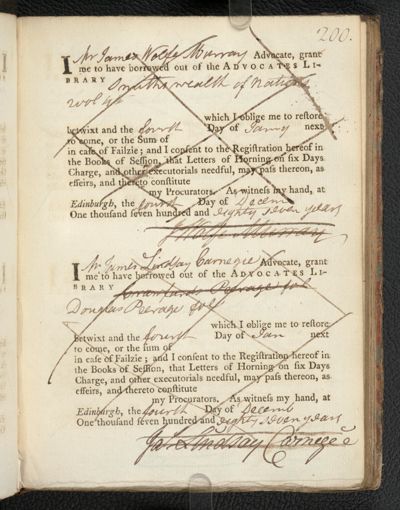 200.
I Mr James Wolfe Murray Advocate, grant
me to have borrowed out of the ADVOCATES LI-
BRARY Smiths wealth of Nations
2 vol 4to
which I oblige me to restore
betwixt and the fourth Day of Janry next
to come, or the Sum of
in case of Failzie; and I consent to the Registration hereof in
the Books of Session, that Letters of Horning on six Days
Charge, and other executorials needful, may pass thereon, as
effeirs, and thereto constitute
my Procurators. As witness my hand, at
Edinburgh, the fourth Day of Decem
One thousand seven hundred and eighty seven years
Js Wolfe Murray
I Mr. James Lindsay Carnegie Advocate, grant
me to have borrowed out of the ADVOCATES LI-
BRARY Crawfurds Peerage fol
Douglas Peerage fol
which I oblige me to restore
betwixt and the fourth Day of Jan next
to come, or the sum of
in case of Failzie; and I consent to the Registration hereof in
the Books of Session, that Letters of Horning on six Days
Charge, and other executorials needful, may pass thereon, as
effeirs, and thereto constitute
my Procurators. As witness my hand, at
Edinburgh, the fourth Day of Decemb
One thousand seven hundred and eighty seven years
Jas Lindsay Carnegie